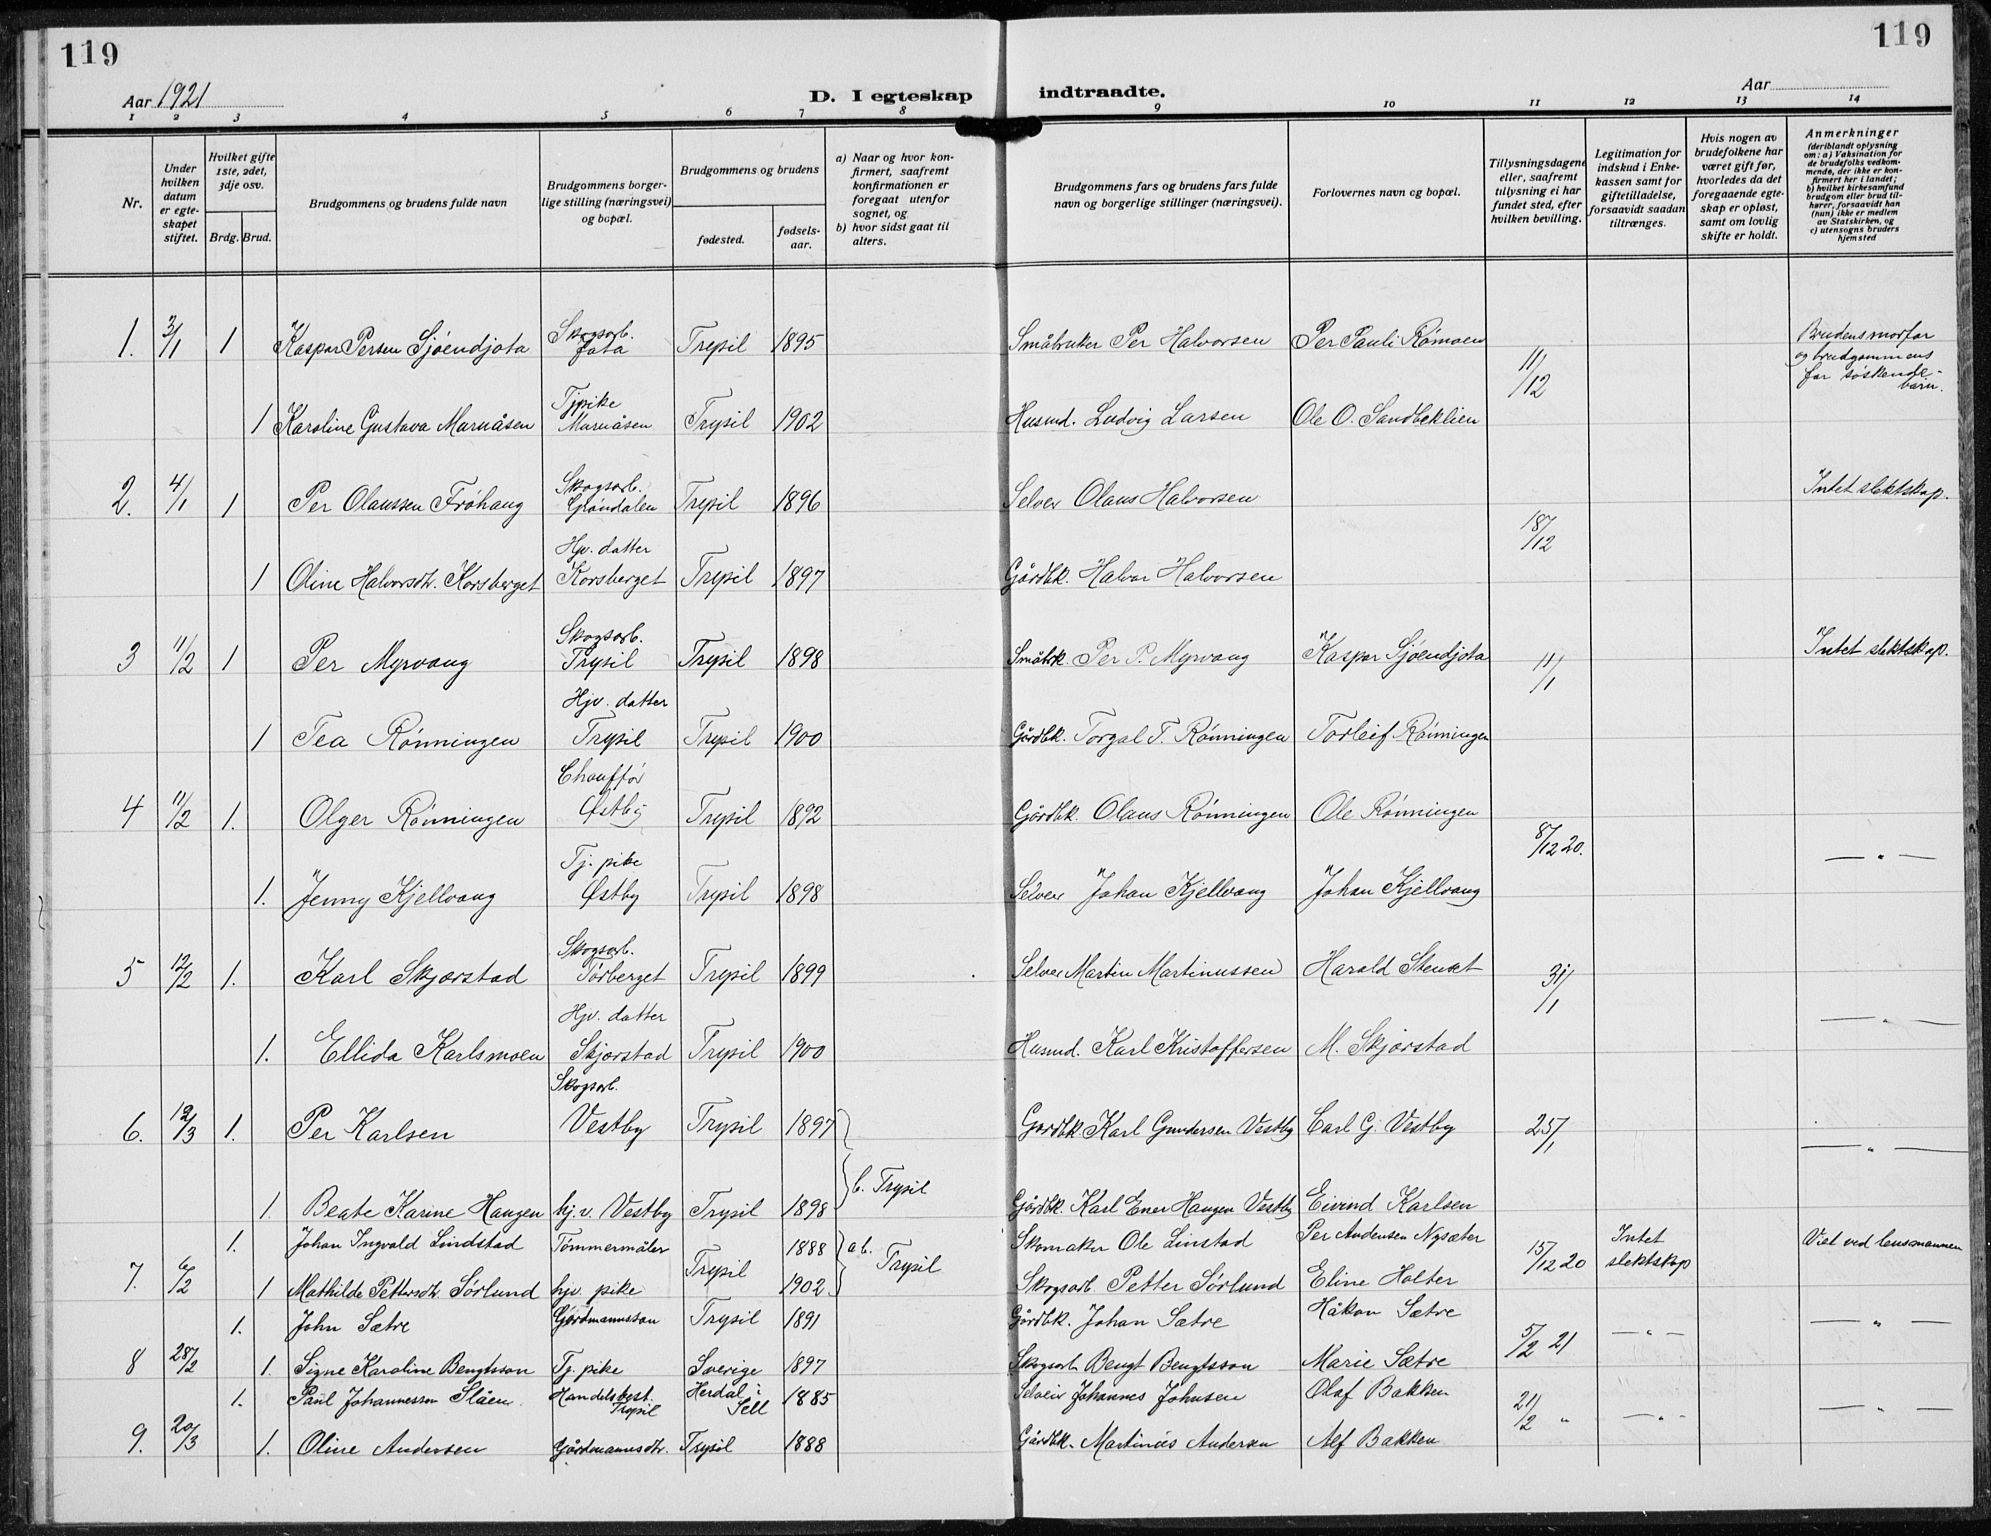 119
119
Aar 1921
D. I egteskap indtraadte.
Aar
1 2 3 4 5 6 7 8 9 10 11 12 13 14
Nr.
Under hvilken datum er egteskapet stiftet.
Hvilket gifte 1ste, 2det, 3dje osv.
Brdg. Brud.
Brudgommens og brudens fulde navn
Brudgommens borgerlige stilling (næringsvei) og bopæl.
Brudgommens og brudens
fødested.
fødselsaar.
a) Naar og hvor konfirmert, saafremt konfirmationen er foregaat utenfor sognet, og
b) hvor sidst gaat til alters.
Brudgommens fars og brudens fars fulde navn og borgerlige stillinger (næringsvei).
Forlovernes navn og bopæl.
Tillysningsdagene eller, saafremt tillysning ei har fundet sted, efter hvilken bevilling.
Legitimation for indskud i Enkekassen samt for giftetilladelse, forsaavidt saadan tiltrænges.
Hvis nogen av brudefolkene har været gift før, hvorledes da det foregaaende egteskap er opløst, samt om lovlig skifte er holdt.
Anmerkninger (deriblandt oplysning om: a) Vaksination for de brudefolks vedkommende, der ikke er konfirmert her i landet; b) hvilket kirkesamfund brudgom eller brud tilhører, forsaavidt han (hun) ikke er medlem av Statskirken, og c) utensogns bruders hjemsted
1. 3/1 1 Kaspar Persen Sjøendjota Skogsarb. Trysil 1895 Småbruker Per Halvorsen Per Pauli Rømoen 11/12 Brudens morfar og brudgommens far søskendebarn.
1 Karoline Gustava Marnåsen Tjpike Marnåsen Trysil 1902 Husmd. Ludvig Larsen Ole O. Sandbeklien
2. 4/1 1 Per Olaussen Frøhaug Skogsarb. Grøndalen Trysil 1896 Selveier Olaus Halvorsen 18/12 Intet slektskap.
1 Oline Halvorsdtr. Korsberget Hjv. datter Korsberget Trysil 1897 Gårdbk. Halvor Halvorsen
3 11/2 1 Per Myrvang Skogsarb. Trysil Trysil 1898 Småbrk. Per P. Myrvang Kaspar Sjøendjota 11/1 Intet slektskap.
1 Tea Rønningen Hjv. datter Trysil Trysil 1900 Gårdbk. Torgal T. Rønningen Torleif Rønningen
4 11/2 1. Olger Rønningen Chauffør Østby Trysil 1892 Gårdbk. Olaus Rønningen Ole Rønningen 8/12 20. — " —
1. Jenny Kjellvang Tj. pike Østby Trysil 1898 Selveier Johan Kjellvang Johan Kjellvang
5 12/2 1. Karl Skjærstad Skogsarb. Tørberget Trysil 1899 Selveier Martin Martinussen Harald Stenet 31/1 — " —
1. Ellida Karlsmoen Hjv. datter Skjærstad Trysil 1900 Husmd. Karl Kristoffersen M. Skjærstad
6. 12/3 1. Per Karlsen Skogsarb. Vestby Trysil 1897 Gårdbk Karl Gundersen Vestby Carl G. Vestby 25/1 — " —
1. Beate Karine Haugen hj.v. Vestby Trysil 1898 b. Trysil Gårdbk. Karl Ener Haugen Vestby Eivind Karlsen
7. 6/2 1. Johan Ingvald Lindstad Tømmermåler Trysil 1888 ab. Trysil Skomaker Ole Linstad Per Andersen Nysæter 15/12 20 Intet slektskap Viet ved lensmannen
1 Mathilde Pettersdtr. Sørlund hjv. pike 1902 Skogsarb. Petter Sørlund Eline Holter
8 28/2 1. John Sætre Gårdmannssøn Trysil 1891 Gårdbk. Johan Sætre Håkon Sætre 5/2 21 — " — — " —
1. Signe Karoline Bengtsson Tj. pike Sverige 1897 Skogsarb. Bengt Bengtsson Marie Sætre
9. 20/3 1. Paul Johannessen Slåen Handelsbest. Trysil Herdal i Sell 1885 Selveier Johannes Johnsen Olaf Bakken 21/2 " — " — — " —
1. Oline Andersen Gårdmannsdtr. Trysil 1888 Gårdbk. Martinus Andersen Alf Bakken